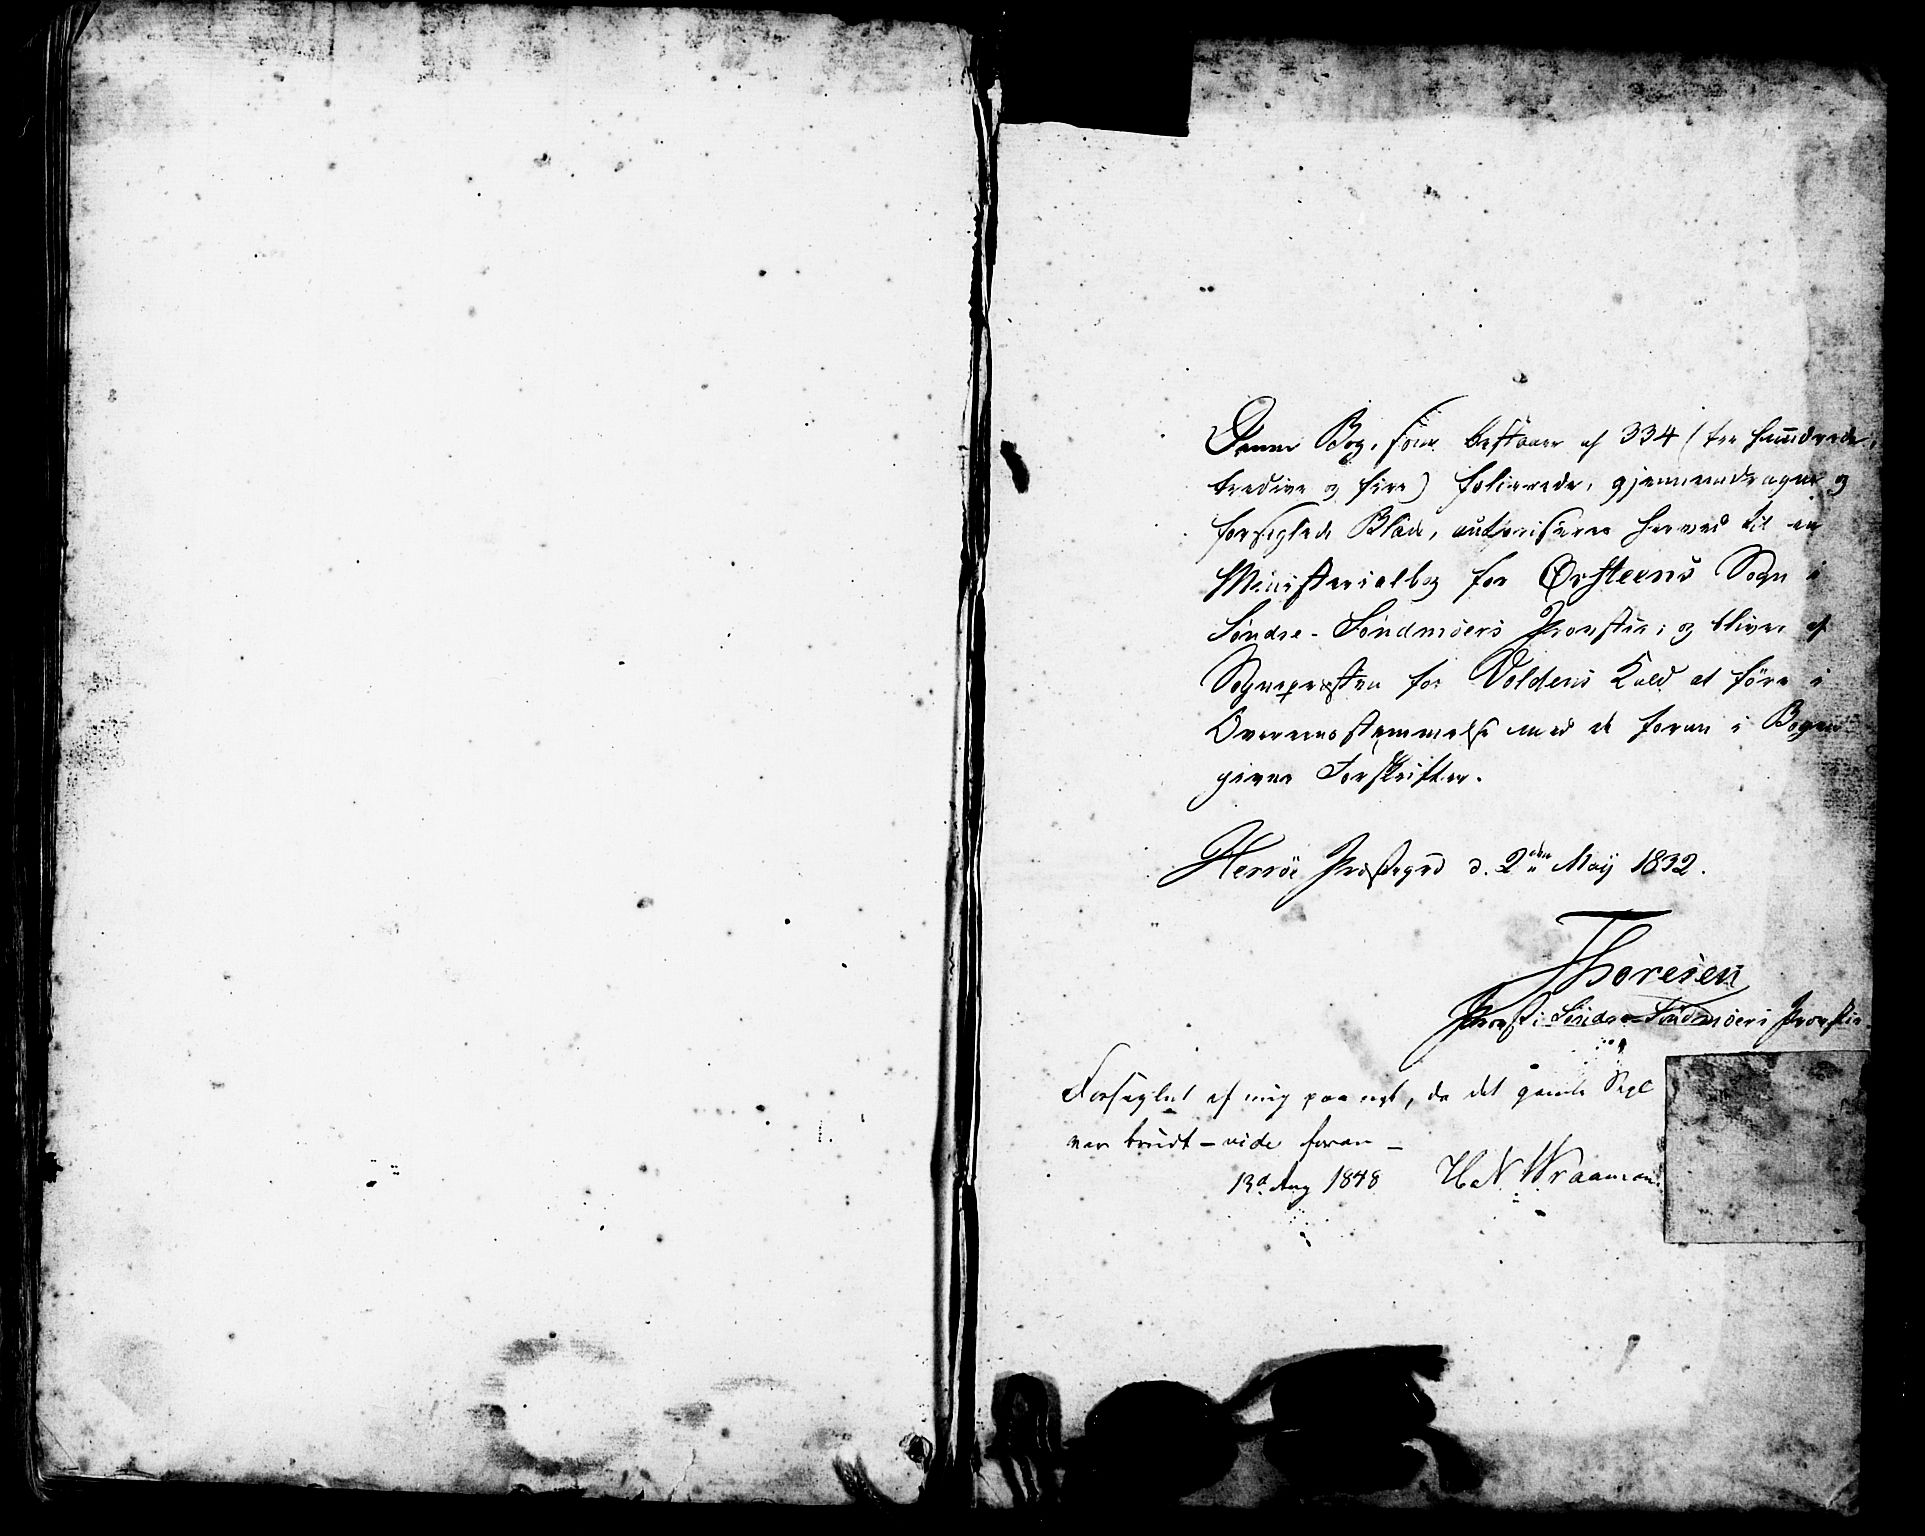 Denne Bog, som bestaaer af 334 (tre hundrede,
tredive og fire) folierede, gjennemdragne og
forseglede Blade, autoriseres herved til en
Ministerialbog for Ørsteens Sogn i
Søndre-Søndmöers Provstie; og bliver af
Sognepræsten for Voldens Kald at före i
Overeensstemmelse med de foran i Bogen
givne Forskrifter.
Herröe Præstegrd d. 2den May 1832.
Thoresen
Provst i Søndre-Söndmöers Provstie.
Forseglet af mig paa nyt, da det gamle Segl
var brudt - vide foran -
13d Aug 1848 H N Wraamann